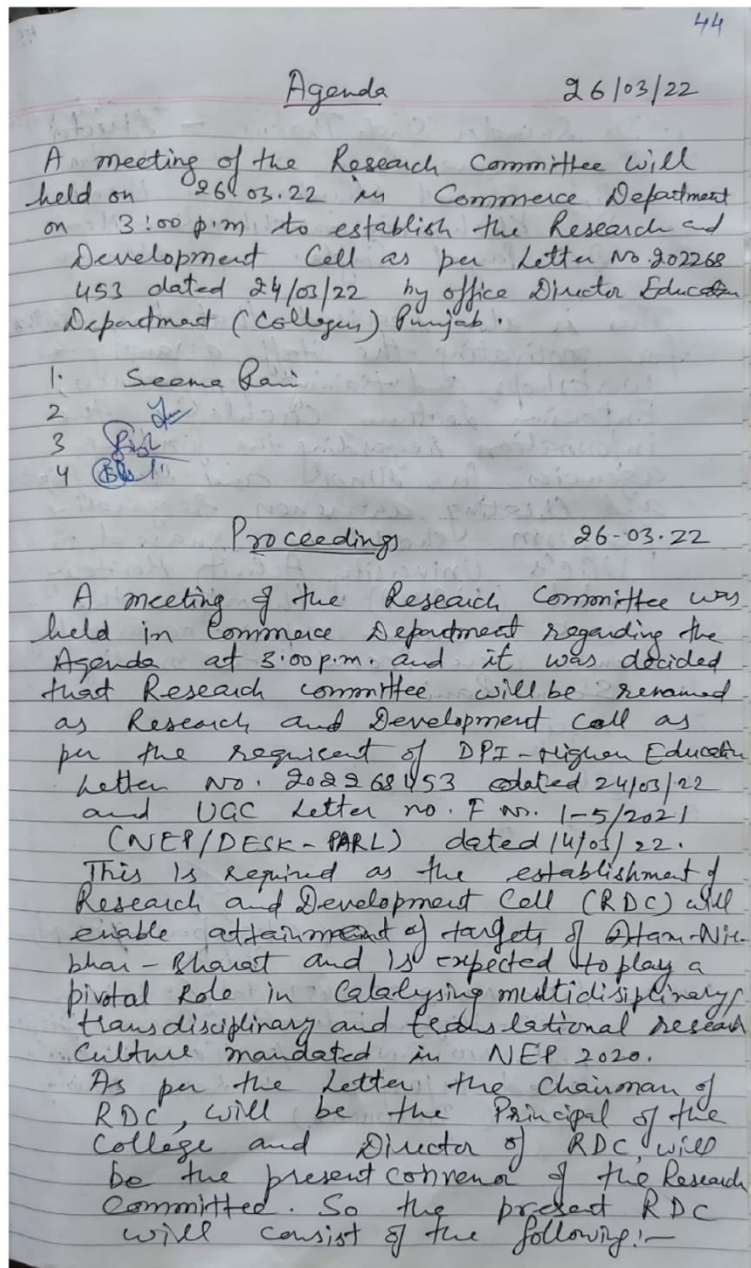 44
Agenda 26/03/22
A meeting of the Research Committee will
held on 26.03.22 in Commerce Department
on 3:00 p.m to establish the Research and
Development Cell as per Letter No. 202268
453 dated 24/03/22 by office Director Education
Department (Colleges) Punjab.
1. Seema Rani
2
3
4
Proceedings 26-03.22
A meeting of the Research Committee was
held in Commerce Department regarding the
Agenda at 3:00 p.m. and it was decided
that Research committee will be renamed
as Research and Development Cell as
per the requirent of DPI-Higher Education
Letter No. 202268453 dated 24/03/22
and UGC Letter no. F No. 1-5/2021
(NEP/DESK-PARL) dated 14/03/22.
This is required as the establishment of
Research and Development Cell (RDC) will
enable attainment of targets of Atam-Nir-
bhar-Bharat and is expected to play a
pivotal Role in Catalysing multidisiplinary/
transdisciplinary and translational research
Culture mandated in NEP 2020.
As per the Letter the Chairman of
RDC, will be the Principal of the
College and Director of RDC, will
be the present convenor of the Research
Committed. So the present RDC
will consist of the following:-